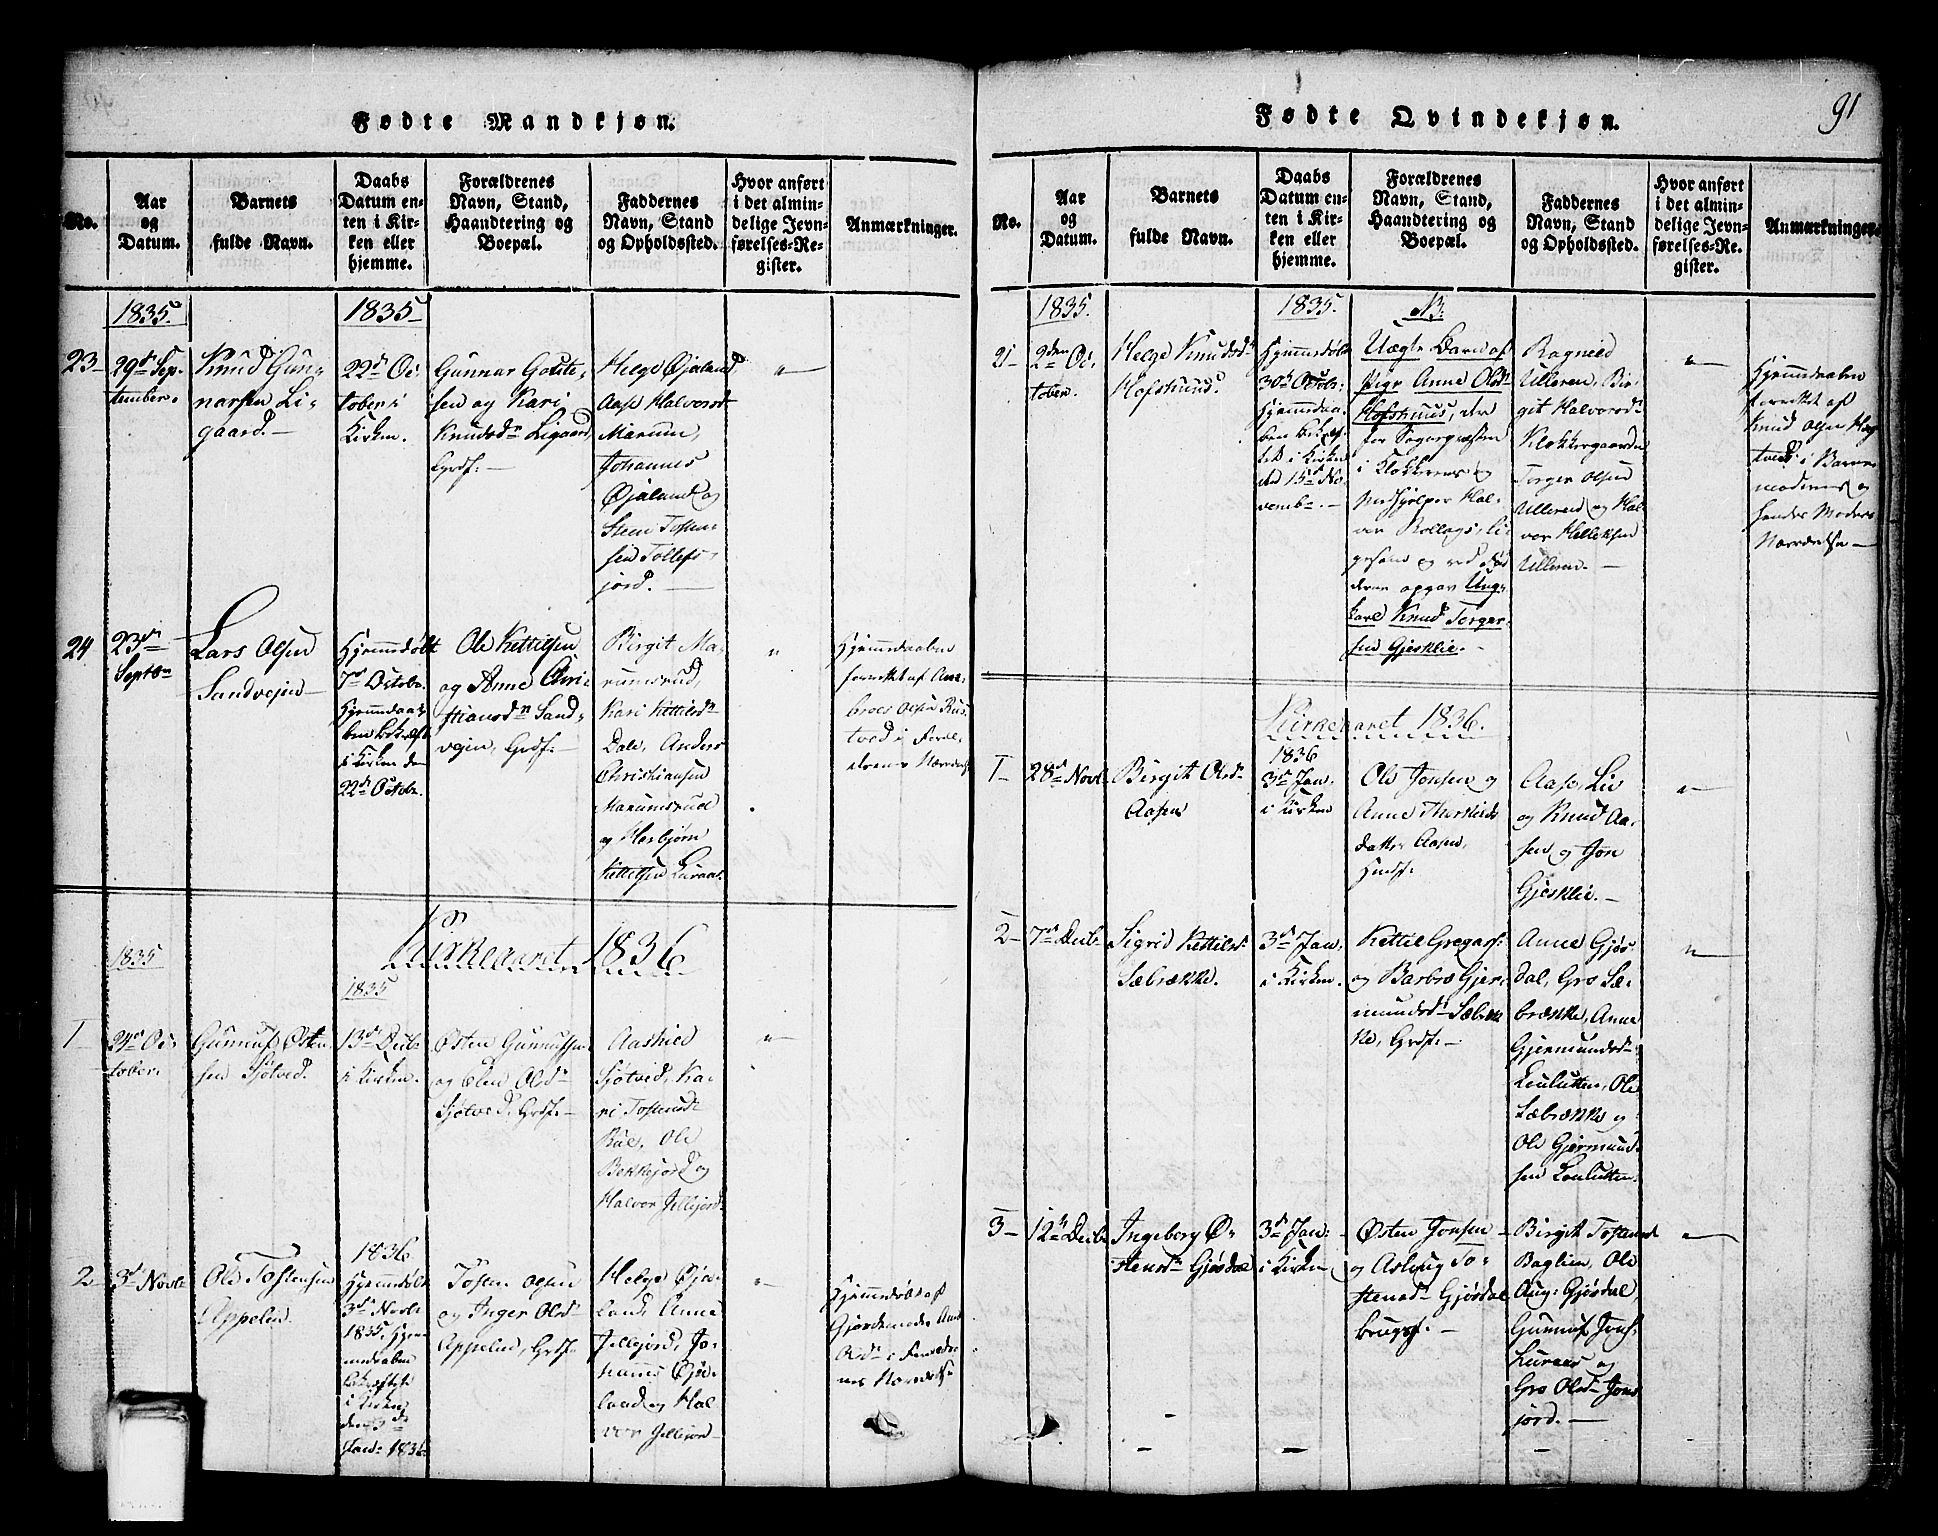 91
Fødte Mandkjøn.
No.
Aar
og
Datum.
Barnets
fulde Navn.
Daabs
Datum en-
ten i Kir-
ken eller
hjemme.
Forældrenes
Navn, Stand,
Haandtering og
Boepæl.
Faddernes
Navn, Stand
og Opholdssted.
Hvor anført
i det almin-
delige Jevn-
førelses-Re-
gister.
Anmærkninger.
1835.
1835
23
29de Sep-
tember.
Knud Gun-
narsen Li-
gaard.
22de Oc-
tober i
Kirken.
Gunnar Goute-
sen og Kari
Knudsdr Ligaard,
Grdf:
Helge Øjeland
Aase Halvorsd
Marum,
Johannes
Øjeland og
Steen Tosten-
sen Tollefs-
jord.
24
23de
Septbr
Lars Olsen
Sandvejen
Hjemmedøbt
7de Octobr.
Hjemmedaa-
ben bekræft
i Kirken den
22de Octobr.
Ole Kettilsen
og Anne Chri-
stiansdr Sand-
vejen, Grdf:
Birgit Ma-
rumsrud,
Kari Kettilsdr
Dale, Anders
Christiansen
Marumsrud
og Herbjørn
Kettilsen Luraas.
Hjemmedaaben
forrettet af Am-
bros Olsen Rus-
tved i Forel-
drenes Nærværelse
Kirkeaaret 1836
1835
1835
1
24de Oc-
tober.
Gunnuf Østen-
sen Sjøtved.
13de Decbr
i Kirken.
Østen Gunnufsen
og Elen Olsdr
Sjøtved, Grdf:
Aashild
Sjøtved, Ka-
ri Tostensdr
Bøe, Ole
Bekkejord og
Halvor Jellejord
1836
2
3de Novbr
Ole Tostensen
Appelen.
Hjemmedøbt
3de Novbr
1835. Hjem-
medaaben
bekræftet
i Kirken
den 3de
Jan: 1836
Tosten Olsen
og Inger Olsdr
Appelen, Grdf:
Helge Øje-
land, Anne
Jellejord, Jo-
hannes Øje-
land og Hal-
vor Jellejord
Hjemmedøbt af
Gjordemoder Anne
Olsdr i Foreldre-
nes Nærværelse
Fødte Qvindekjøn.
No.
Aar
og
Datum.
Barnets
fulde Navn.
Daabs
Datum en-
ten i Kir-
ken eller
hjemme.
Forældrenes
Navn, Stand,
Haandtering og
Boepæl.
Faddernes
Navn, Stand
og Opholdssted.
Hvor anført
i det almin-
delige Jevn-
førelses-Re-
gister.
Anmærkninger.
1835.
1835.
NB.
21
2den Oc-
tober.
Helge Knudsdr
Hofsmund.
Hjemmedøbt
30de Octobr.
Hjemmedaa-
ben bekræf-
tet i Kirken
den 15de No-
vembr.
Uægte Barn af
Pige Anne Olsdr
Hofsmuus, der
for Sognepræsten
i Klokkerens og
Medhjelper Hal-
vor Bollags
og ved
opgav Ung-
karl Knud Torger-
sen Gjesklie.
Ragnild
Ulleren, Bir-
git Halvorsdr
Klokkergaarden
Torger Olsen
Ulleren og Hal-
vor Helleksen
Ulleren.
Hjemmedaaben
forrettet af
Knud Olsen
i Barne-
moderens og
hendes Moders
Nærværelse
Kirkeaaret 1836.
1836
1
28de Novbr
Birgit Olsdr
Aasen
3de Jan:
i Kirken
Ole Jonsen og
Anne Thorkilds-
datter Aasen,
Husf:
Aase, Liv
og Knud Aa-
sen og Jon
Gjesklie.
2
7de Decbr
Sigrid Kettilsd
Sæbrække.
3de Jan:
i Kirken.
Kettil Gregars:
og Barbro Gjer-
mundsdr Sæbræk-
ke, Grdf:
Anne Gjøs-
dal, Gro Sæ-
brække, Anne
Gjermundsdr
Lonlutten, Ole
Sæbrække og
Ole Gjermund-
sen Lonlutten.
3
12te Decbr
Ingeborg Ø-
stensdr Gjøsdal
3de Jan:
i Kirken
Østen Jonsen
og Aslaug To-
stensdr Gjøsdal
brugsf:
Birgit Tostensd
Baglien, Ole
Aug: Gjøsdal,
Gunnuf Jons:
Luraas og
Gro Olsdr Jons-
jord.